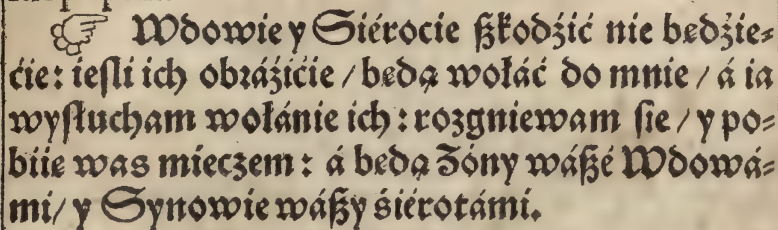 ☞ Wdowie y Siérocie ßkodźić nie będzie⸗
ćie: ieſli ich obráźićie / będą wołáć do mnie / á ia
wyſłucham wołánie ich : rozgniewam ſie / y po⸗
biię was mieczem : á będą Żóny wáßé Wdowá⸗
mi / y Synowie wáßy śiérotámi.